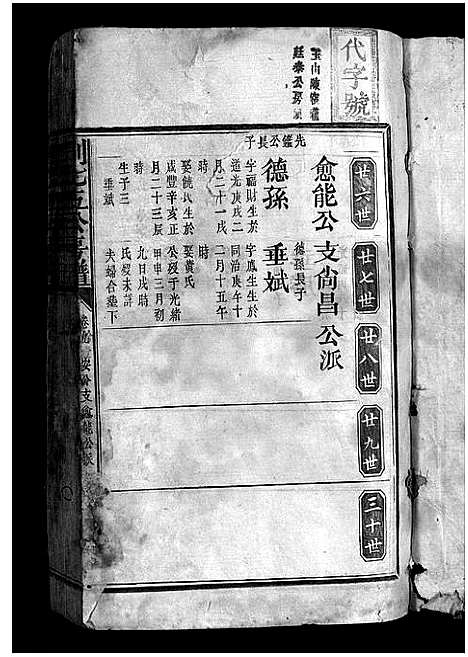 代字號
廿六世
廿七世
廿八世
廿九世
三十世
愈能公支尙昌公派
先鑑公長子
德孫
字福財生於
道光庚戌二
月二十一戌
時
娶饒氏生於
咸豐辛亥正
月二十三辰
時
生子三
垂斌
德孫長子
垂斌
字鳳生生於
同治庚午十
二月十五午
時
娶黃氏
公歿于光緒
甲申三月初
九日戌時
氏歿未詳
夫婦合塟下
公支愈能公派